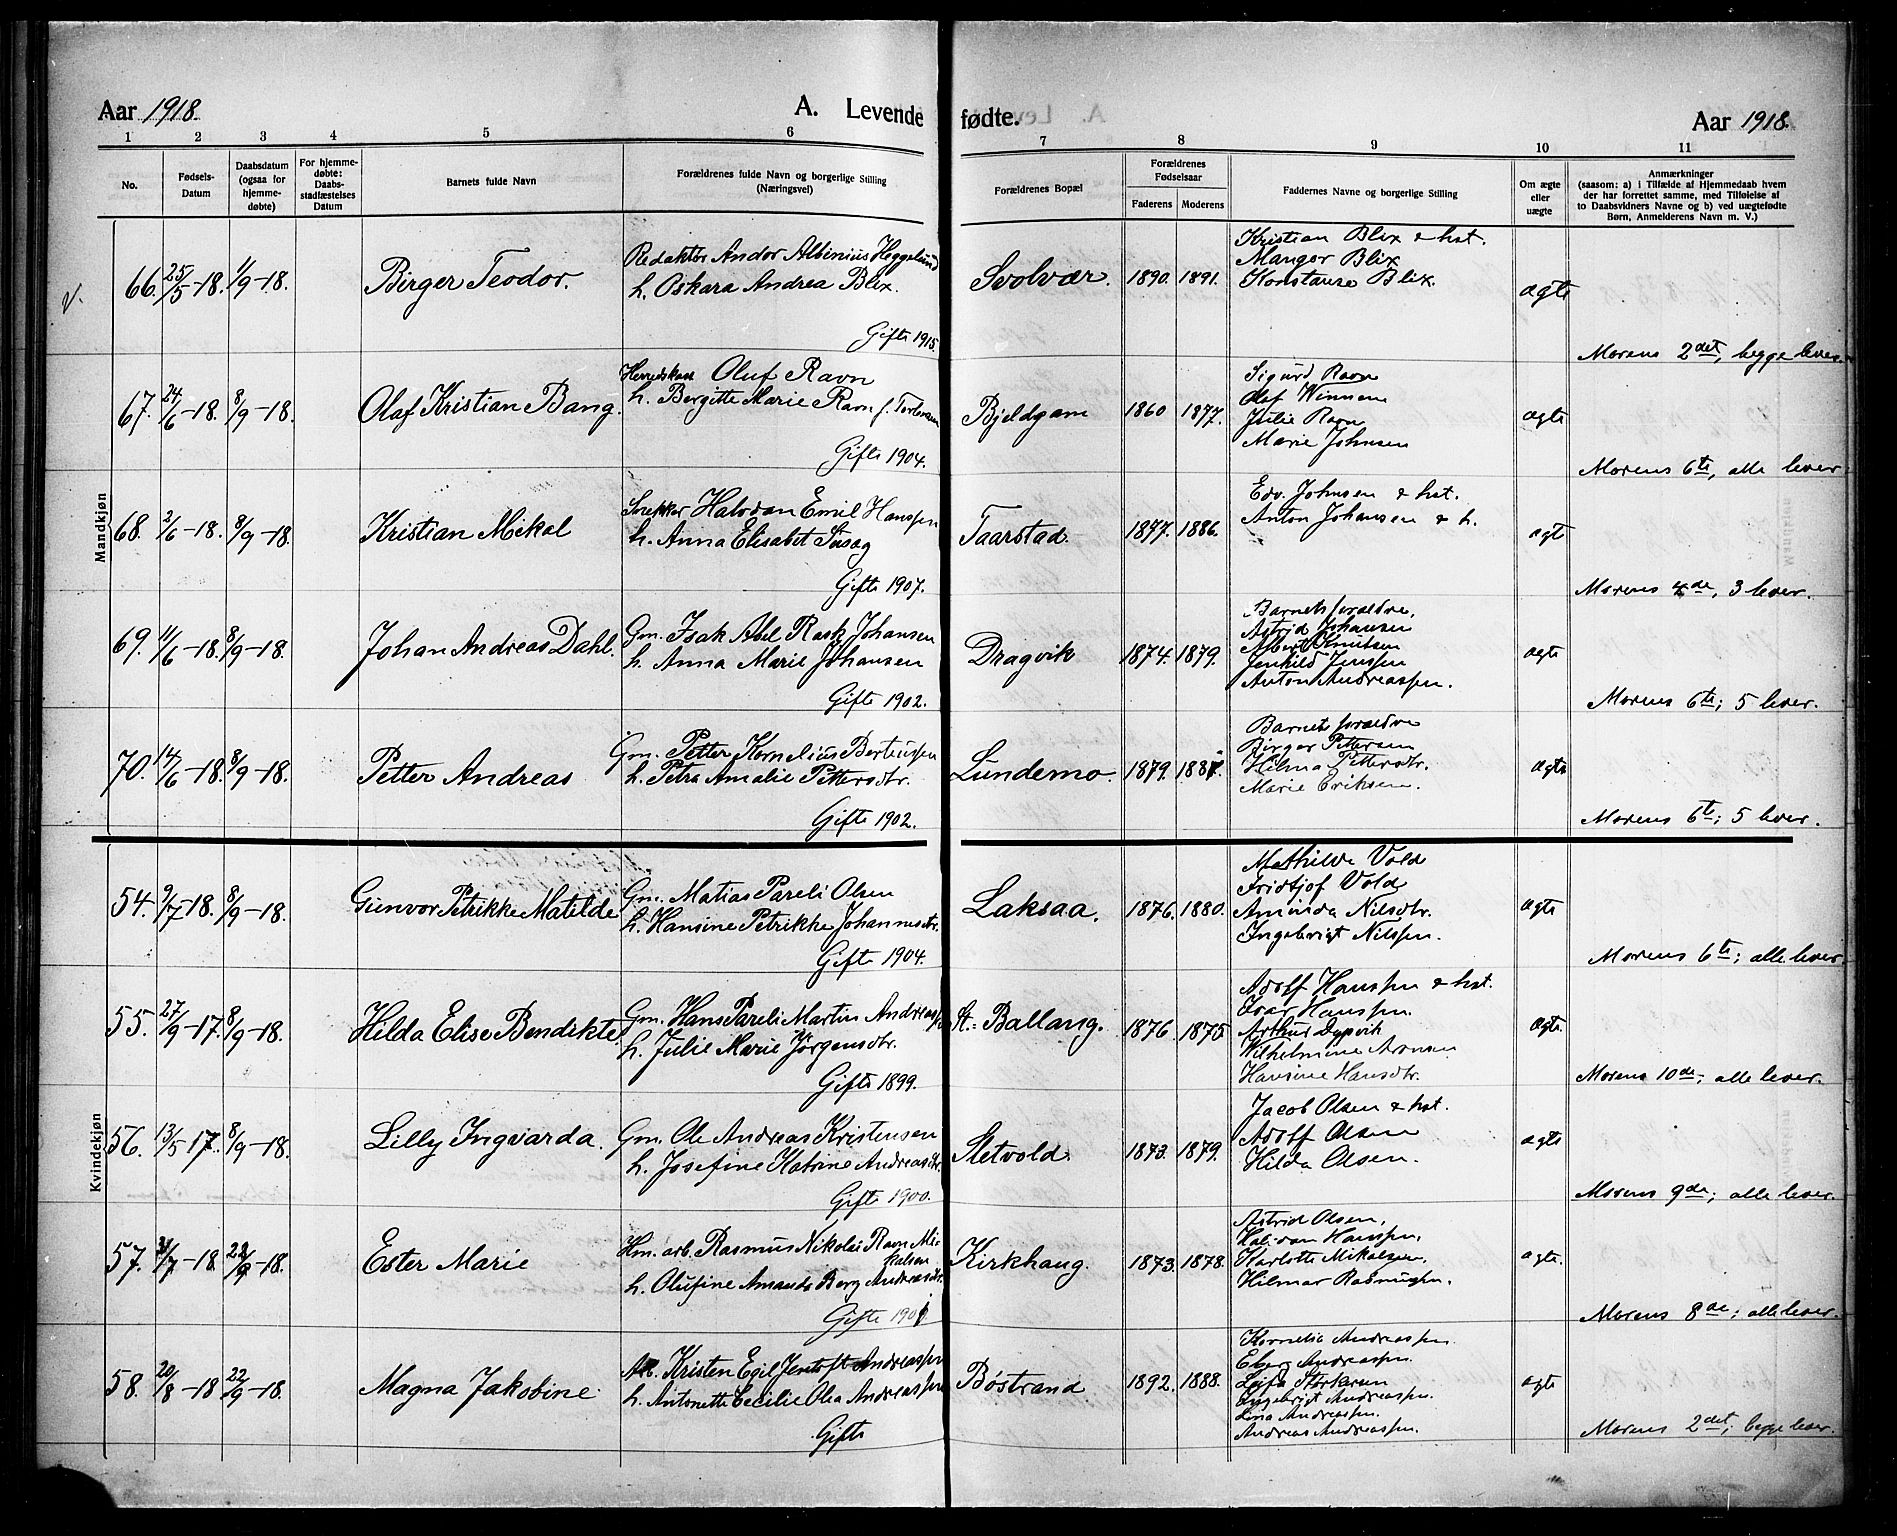 Aar 1918.
A. Levende fødte.
Aar 1918.
1 2 3 4 5 6 7 8 9 10 11
No.
Fødsels-
Datum
Daabsdatum
(ogsaa for
hjemme-
døbte)
For hjemme-
døbte:
Daabs-
stadfæstelses
Datum
Barnets fulde Navn
Forældrenes fulde Navn og borgerlige Stilling
(Næringsvei)
Forældrenes Bopæl
Forældrenes
Fødselsaar
Faderens
Moderens
Faddernes Navne og borgerlige Stilling
Om ægte
eller
uægte
Anmærkninger
(saasom: a) i Tilfælde af Hjemmedaab hvem
der har forrettet samme, med Tilføielse af
to Daabsvidners Navne og b) ved uægtefødte
Børn, Anmelderens Navn m. V.)
Mandkjøn
66. 25/5-18. 1/9-18. Birger Teodor.
Redaktør Andor Albinius Heggelund
h. Oskara Andrea Blix.
Gifte 1915.
Svolvær. 1890. 1891.
Kristian Blix & hst.
Mangor Blix
Konstanse Blix.
ægte
Morens 2det, begge lever.
67. 24/6-18. 8/9-18 Olaf Kristian Bang.
Oluf Ravn
h. Bergitte Marie Ravn f.
Gifte 1904.
Bjeldgam 1860 1877.
Sigurd Ravn
Olaf
Julie Ravn
Marie Johnsen
ægte
Morens 6te, alle lever
68. 2/6-18. 8/9-18. Kristian Mikal
Snekker Halvdan Emil Hanssen
h. Anna Elisabet
Gifte 1907.
Taarstad. 1877. 1886.
Edv. Johnsen & hst.
Anton Johansen & h.
ægte
Morens 4de, 3 lever.
69. 11/6-18. 8/9-18. Johan Andreas Dahl.
Gm. Isak Abel Rask Johansen
h. Anna Marie Johansen
Gifte 1902.
Dragvik 1874. 1879.
Barnets foreldre,
Astrid Johansen
Albert Knutsen
Jenhild Jenssen
Anton Andreassen.
ægte
Morens 6te; 5 lever.
70. 14/6-18. 8/9-18. Petter Andreas
Gm. Petter Kornelius Berteussen
h. Petra Amalie Pettersdtr.
Gifte 1902.
Lundemo. 1879. 1881.
Barnets foreldre
Birger Pettersen
Hilma Pettersdtr.
Marie Eriksen.
ægte
Morens 6te; 5 lever.
Kvindekjøn
54. 9/7-18. 8/9-18. Gunvor Petrikke Matilde
Gm. Matias Pareli Olsen
h. Hansine Petrikke Johannesdtr.
Gifte 1904.
Laksaa. 1876. 1880.
Mathilde Vold
Fridtjof Vold
Aminda Nilsdtr.
Ingebrigt Nilssen.
ægte
Morens 6te; alle lever
55. 27/9-17. 8/9-18. Hilda Elise Bendikte
Gm. Hans Pareli Martin Andreassen
h. Julie Marie Jørgensdtr.
Gifte 1899.
St. Ballang. 1876. 1875
Adolf Hanssen & hst.
Ivar Hanssen.
Arthur Dypvik
Wilhelmine Aronsen
Hansine Hansdtr.
ægte.
Morens 10de; alle lever.
56. 13/5-17. 8/9-18. Lilly Ingvarda.
Gm. Ole Andreas Kristensen
h. Josefine Katrine Andreasdtr.
Gifte 1900.
Sletvold. 1873. 1879.
Jacob Olsen & hst.
Adolf Olsen
Hilda Olsen.
ægte
Morens 9de; alle lever.
57. /7-18 22/9-18. Ester Marie
Hm. arb. Rasmus Nikolai Ravn Mi-
kalsen
h. Olufine Amanda Berg Andreasdtr.
Gifte 1901
Kirkhaug. 1873. 1878.
Astrid Olsen,
Halvdan Hanssen,
Karlotte Mikalsen,
Hilmar Rasmussen.
ægte.
Morens 8de; alle lever.
58. 20/8-18 22/9-18. Magna Jakobine.
Arb. Kristen Egil Jentoft Andreassen
h. Antonette Cecilie Olea Andreassen
Gifte
Bøstrand 1892. 1888.
Kornelia Andreassen.
Eberg Andreassen.
Ingebrigt Andreassen.
Lina Andreassen.
Andreas Andreassen.
ægte
Morens 2det; begge lever.